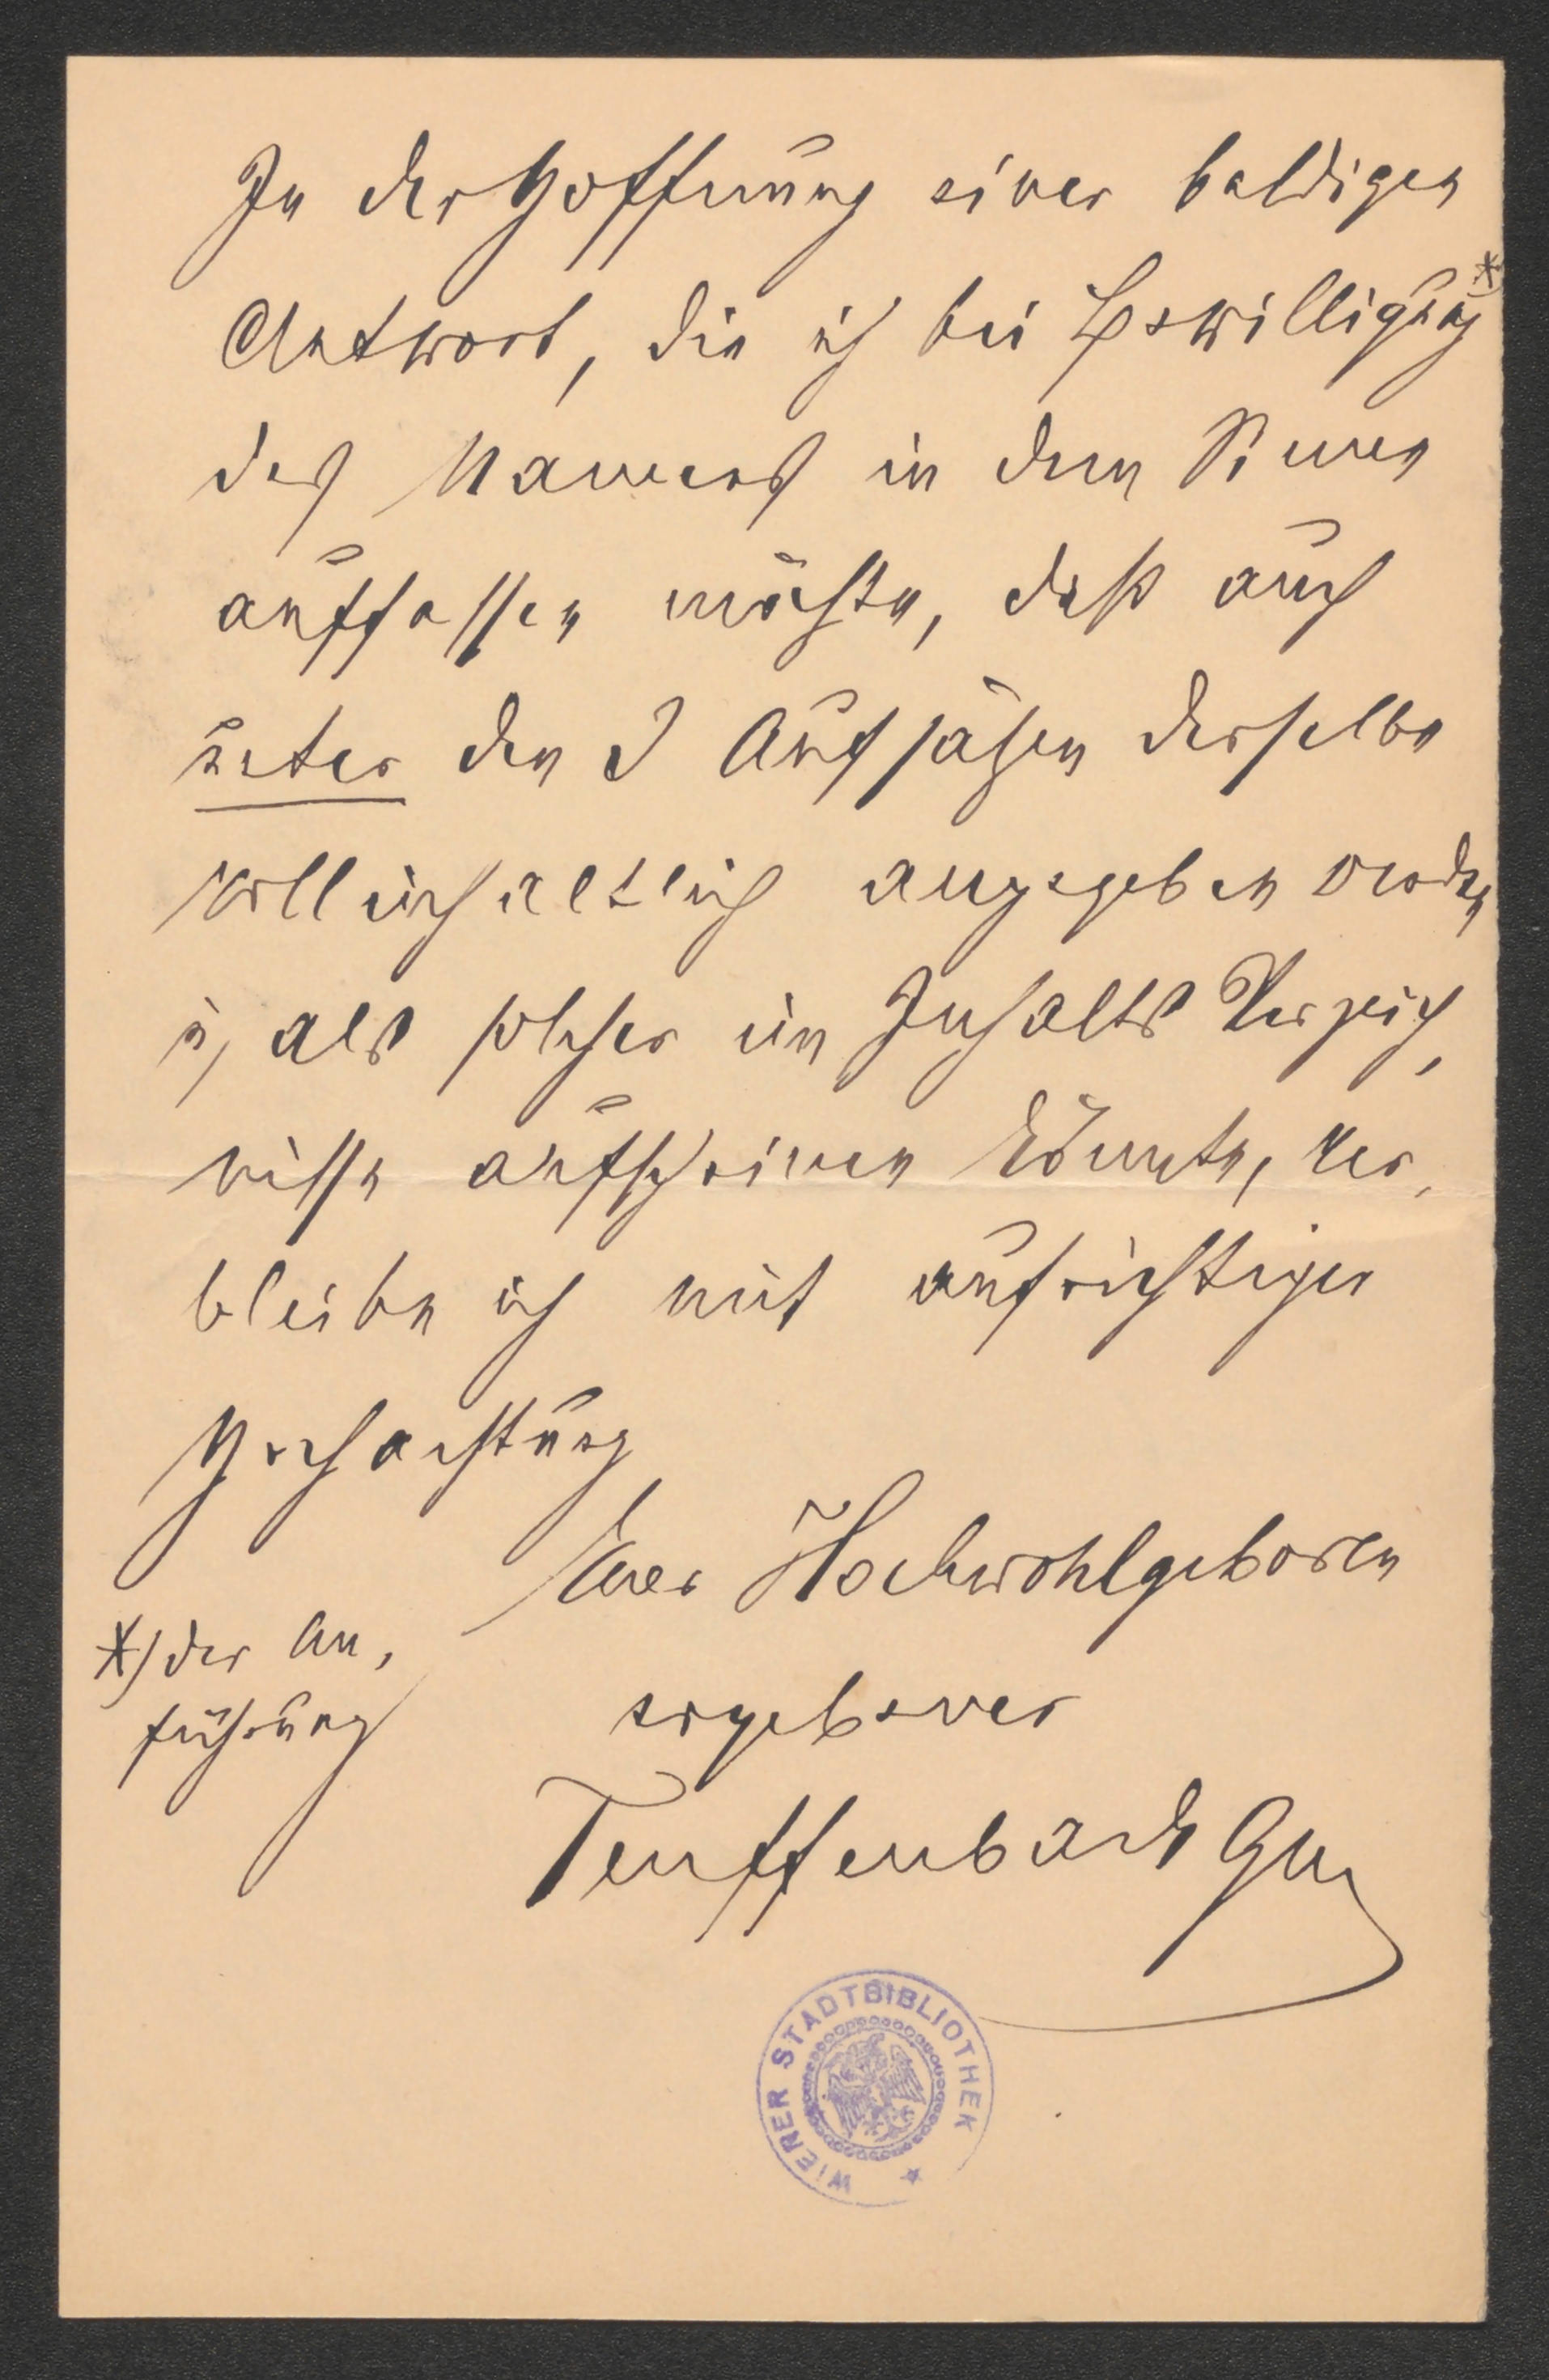 In der Hoffnung einer baldigen
Antwort, die ich bei Bewilligung *
des Namens in dem Sinne
auffassen möchte, daß auch
unter den 3 Aufsätzen derselbe
vollinhaltlich angegeben werden
u, als solcher im Inhalts Verzeich,
nisse aufscheinen könnte, ver,
bleibe ich mit aufrichtiger
Hochachtung
Euer Hochwohlgeboren
*) der An,
führung
ergebener
Teuffenbach
WIENER STADTBIBLIOTHEK